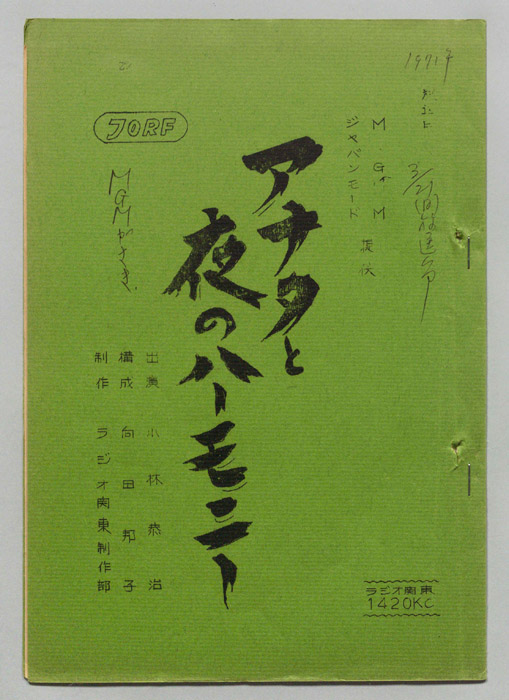 1971年
M.G.M
ジャパンモード
提供
JORF
アナタと
夜のハーモニー
出演 小林恭治
構成 向田邦子
制作 ラジオ関東制作部
ラジオ関東
1420KC